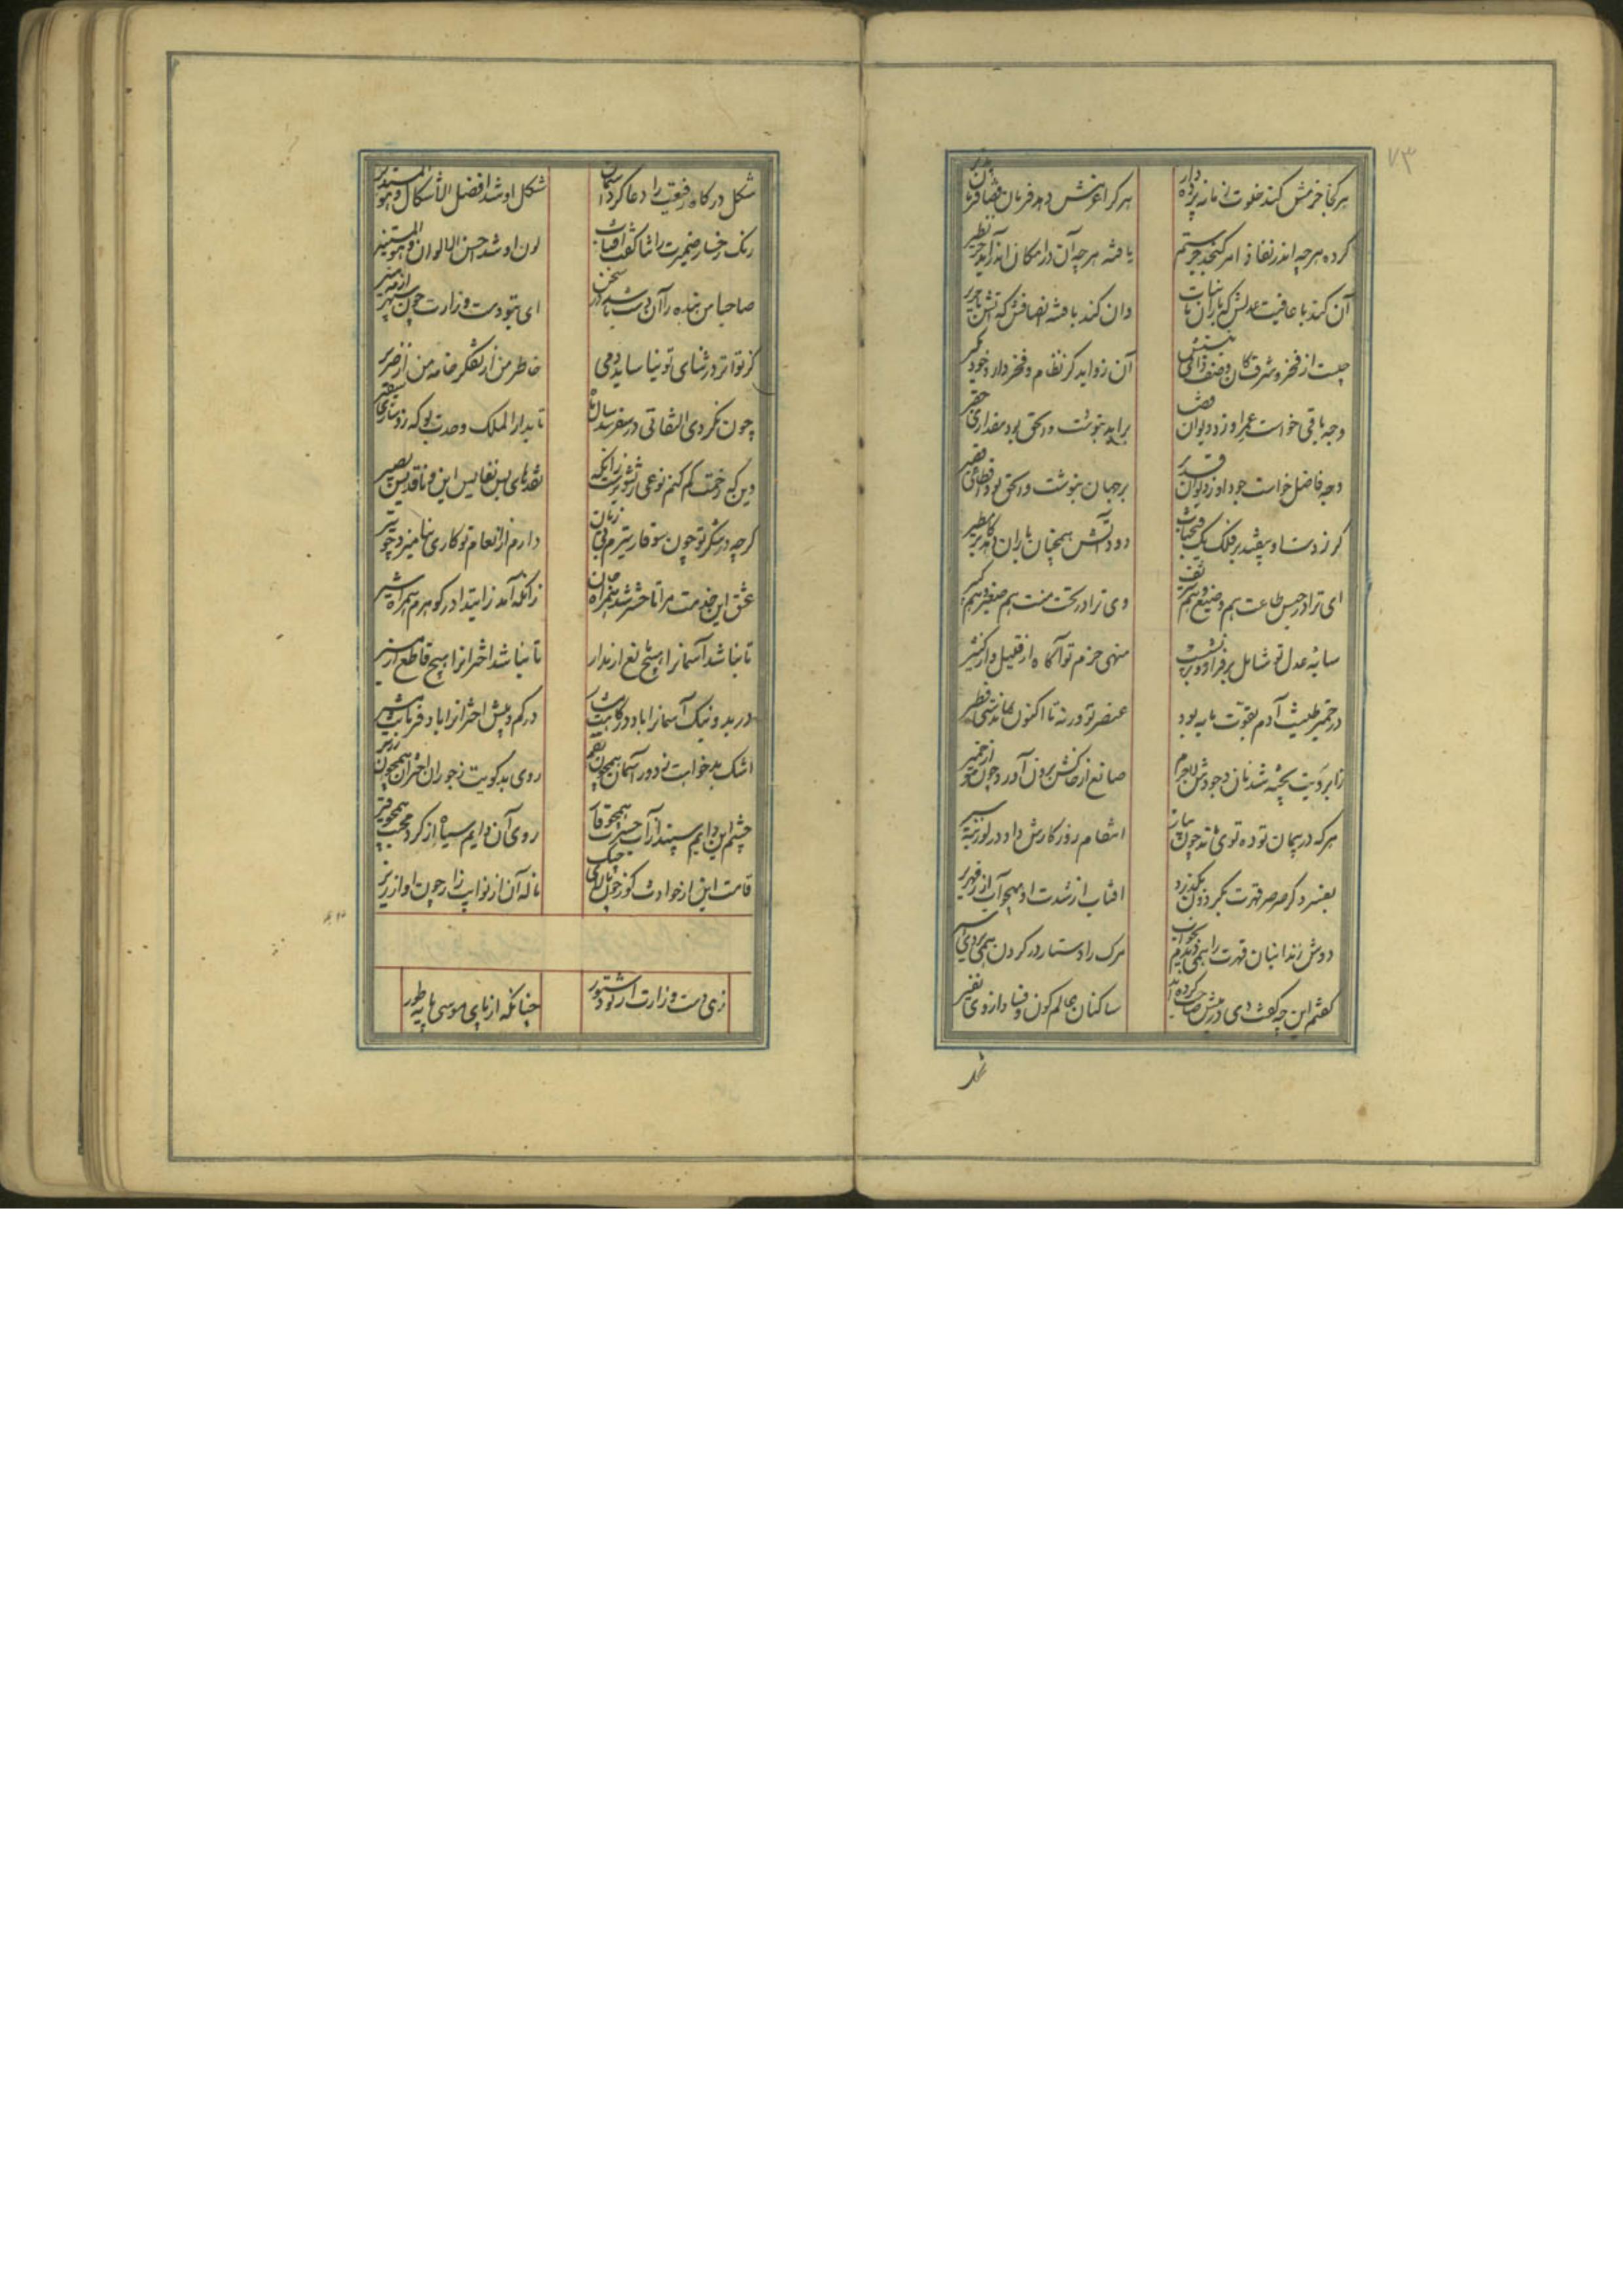 ۷۳
هر کجا حزمش کند خلوت زمانه پرده دار
هر کرا عزمش دهد فرمان قضا فرمان پذیر
کرده هر چه اندر نفاذ امر کنجد جز ستم
یافته هر چه آن در امکان اندر آید جز نظیر
آن کند با عافیت عدلش که باران با نبات
وان کند با فتنه انصافش که آتش با حریر
چیست از فخر و شرف کان وصف ذاتی نیستش
آن زواید کز نظام و فخر دارد خود مگیر
وجه باقی خواست عمر او زد دیوان قضا
بر ابد بنوشت و الحق بود مقداری حقیر
وجه فاضل خواست جود او ز دیوان قدر
بر جهان بنوشت و الحق بود اقطاعی قصیر
کر ز دست او بیفتد بر فلک یک فتح باب
دود آتش همچنان باران دهد کابر مطیر
ای ترا در حبس طاعت هم وضیع و هم شریف
وی ترا در تحت منت هم صغیر و هم کبیر
سایه عدل تو شامل بر فراز و بر نشیب
منهی حزم تو آگاه از قلیل و از کثیر
در خمیر طینت آدم بقوت مایه بود
عنصر تو ورنه تا اکنون بماندستی فطیر
نان وجودش لاجرم
صانع از خاکش برون آورد چون مو از خمیر
هر که در پیمان تو ده توی شد چون پیاز
انتقام روزگارش داد در لوزینه سیر
بفسرد کر صرصر قهرت بکردون بگذرد
افتاب از شدت او همچو آب از زمهریر
دوش زندانبان قهرت را همی دیدم بخواب
مرک را دستار در کردن همی بردی اسیر
کفتم این چه کفت دی در پیش صاحب کرده اند
ساکنان عالم کون و فساد از وی نفیر
شکل درکاه رفیعت را دعا کرد آسمان
شکل او شد افضل الاشکال و هو المستدیر
رنک رخسار ضمیرت را ثنا کفت آفتاب
لون او شد احسن الالوان و هو المستنیر
صاحبا من بنده را آن دست باشد در سخن
ای بتو دست وزارت چون سپهر از مه منیر
کز تواتر در ثنای تو نیاساید دمی
خاطر من از تفکر خامه من از صریر
چون نکردی التفاتی در سفر سالی
تا بدار الملک وحدت بو که زود
وین که زحمت کم کنم نوعی ز تشویرست زانکه
نقدهای بس نفایس این و ناقد بس بصیر
کرچه در شکر تو چون سوفار تیرم بی زبان
دارم از انعام تو کاری بنامیزد چو تیر
عشق این خدمت مرا تا حشر شد همراه جان
زانکه آمد ز ابتدا در کوهرم همراه شیر
تا نباشد آسمانرا هیچ مانع از مدار
تا نباشد اخترانرا هیچ قاطع از مسیر
در بد و نیک آسمانرا باد درکاهت مشار
در کم و بیش اخترانرا باد فرمانت مشیر
اشک بدخواهت ز دور آسمان همچون بقم
روی بدکویت ز جور اختران همچون زریر
چشم این دایم سپید از آب حسرت همچو قار
روی آن دایم سیاه از کرد محنت همچو قیر
قامت این از حوادث کوژ چون بالای چنک
ناله آن از نوایب زار چون آواز زیر
زهی دست وزارت از تو دستور
چنانکه از پای موسی پایه طور